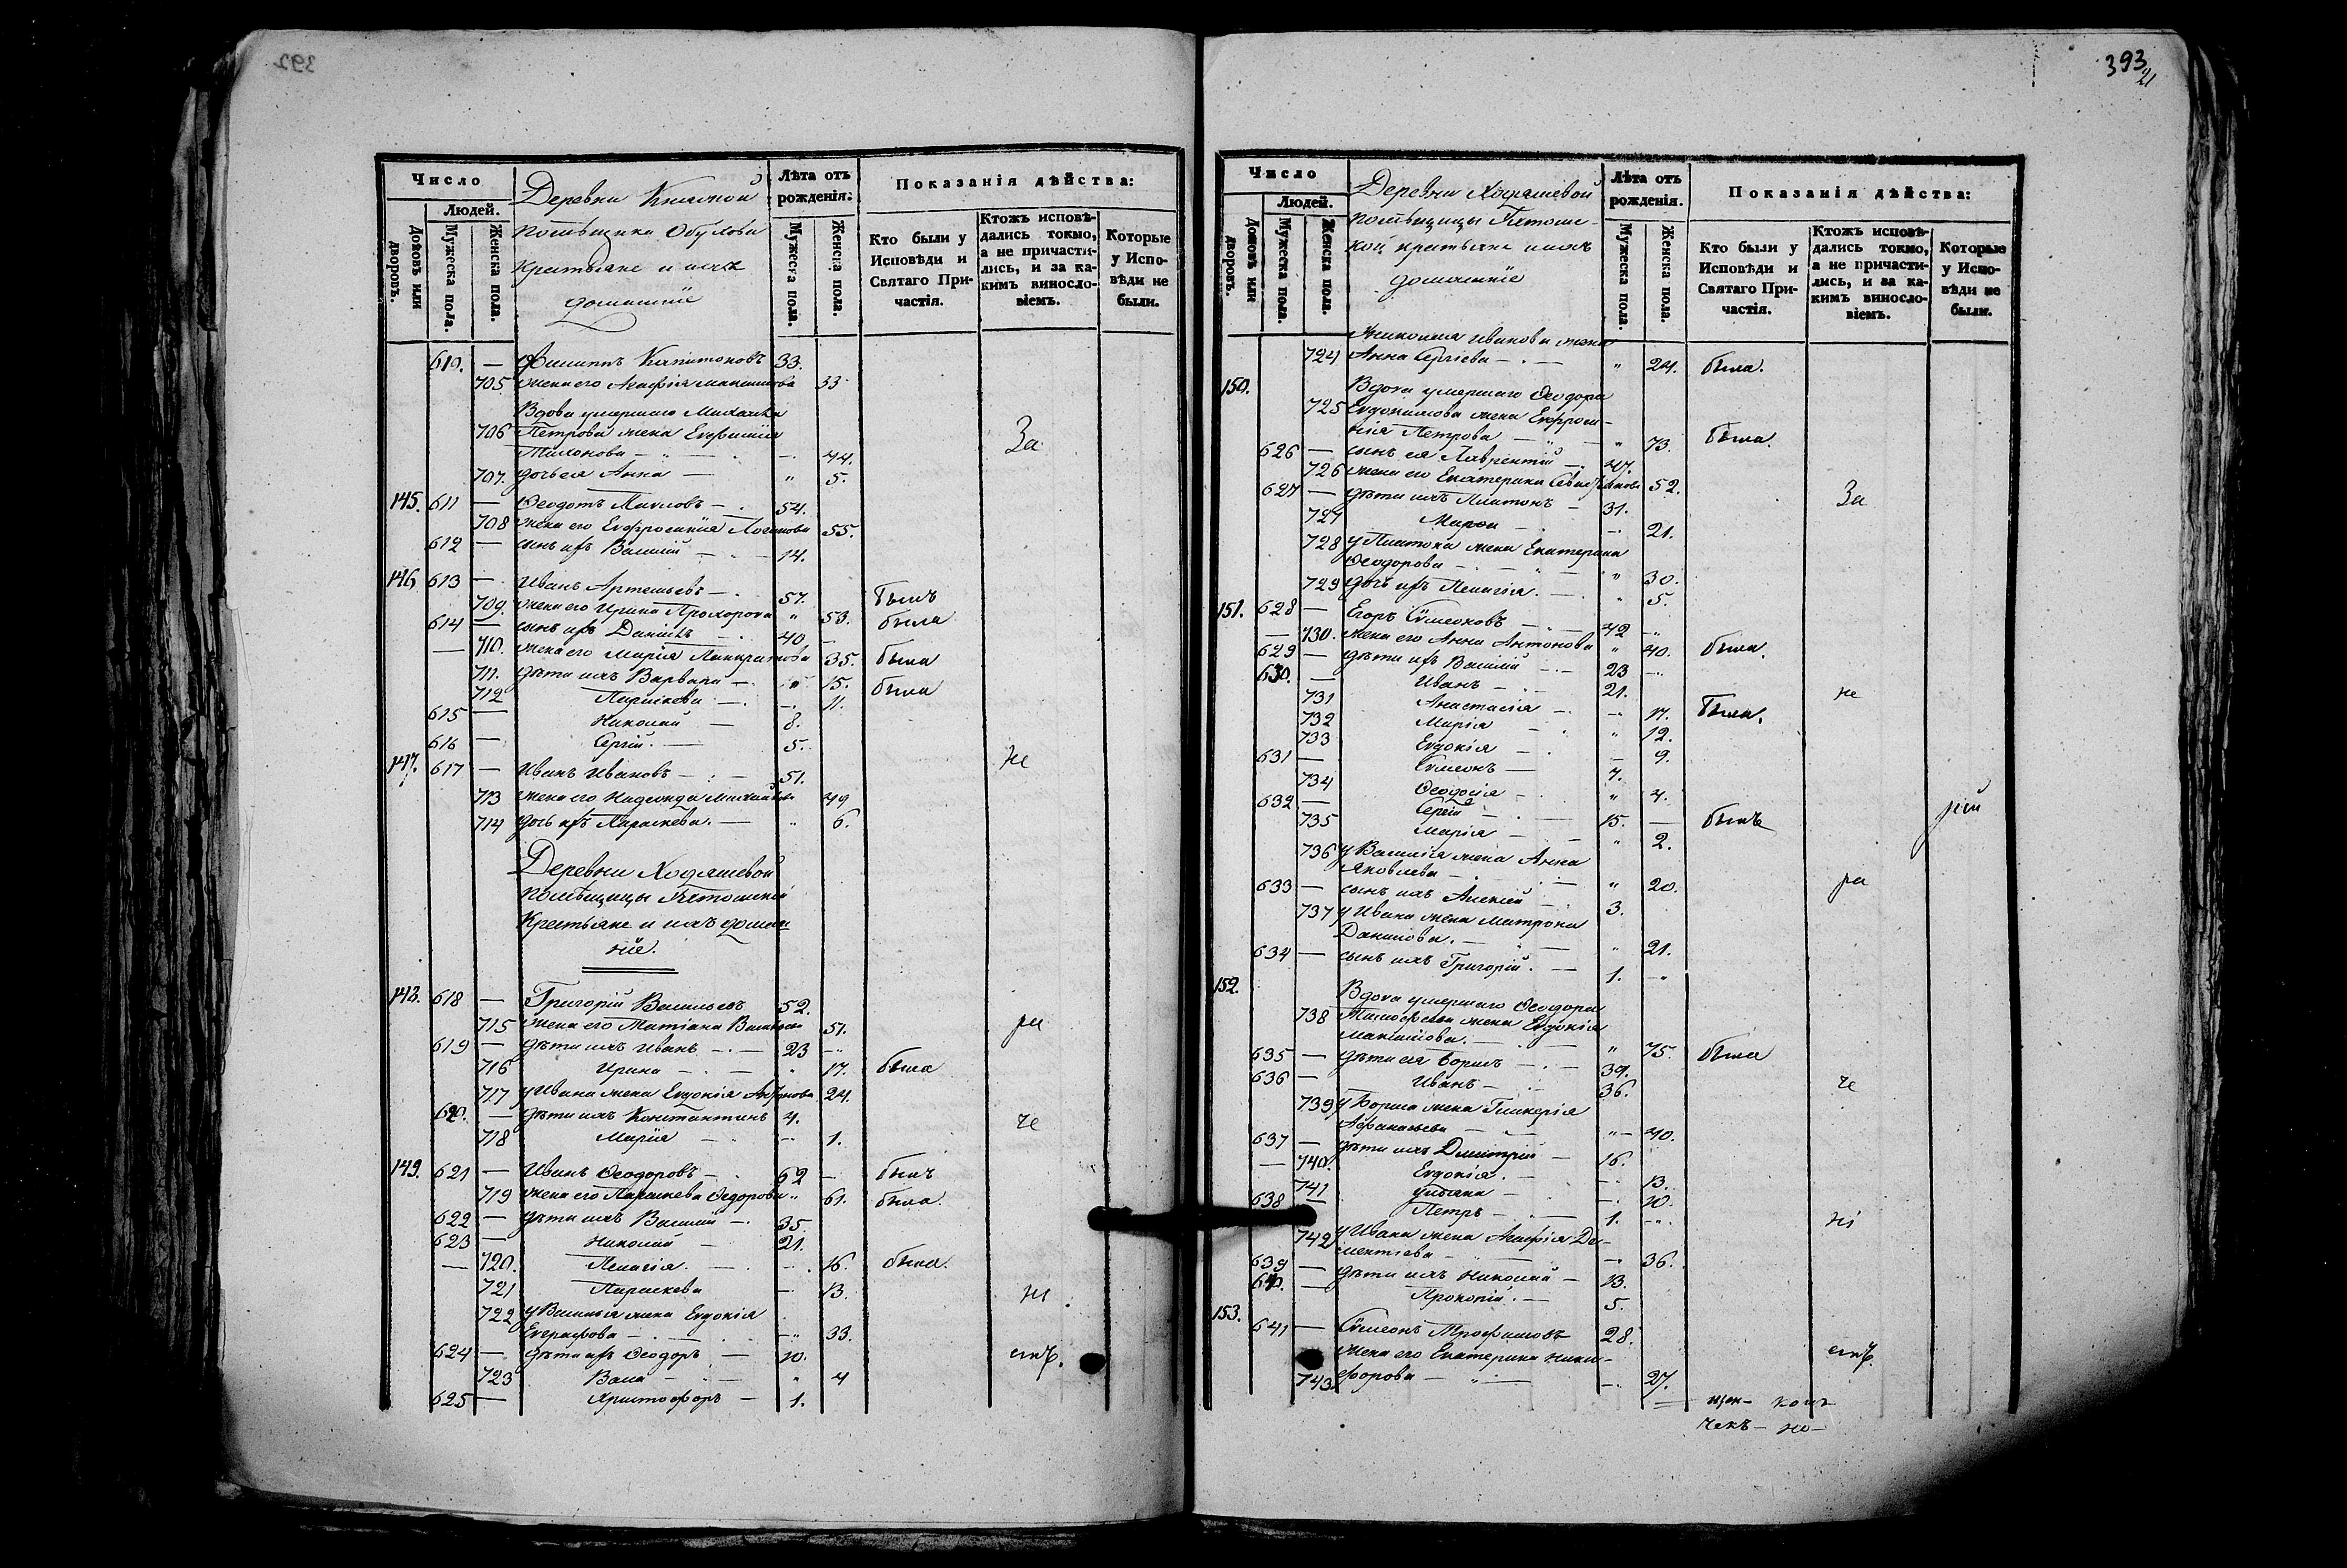 392
Число
Людей.
Домовъ или дворовъ.
Мужеска пола.
Женска пола.
Деревни
помѣщика Обухова
Крестьяне и ихъ
домашніе
Лѣта отъ рожденія.
Мужеска пола.
Женска пола.
Показанія дѣйства:
Кто были у Исповѣди и Святаго Причастія.
Ктожъ исповѣдались токмо, а не причастились, и за какимъ винословіемъ.
Которые у Исповѣди не были.
610. — Филиппъ Капитоновъ 33.
705. жена его Агафія Максимова 33
Вдова умершаго Михаила
706 Петрова жена Евфимія За
Тихонова — " — 44.
707. дочь ея Анна — " 5.
145. 611 — Ѳеодотъ Павловъ — 54.
708 жена его Евфросинія Логинова 55.
612 — сынъ ихъ Василій — 14.
146. 613 — Иванъ Артемьевъ — 57. былъ
709. жена его Ирина Прохорова " 53. была
614 — сынъ ихъ Даніилъ 40
— 710. жена его Марія Панкратова 35. была
711. дѣти ихъ Варвара — " 15. была
712 Параскева — 11.
615 — Николай — 8.
616 — Сергій. — 5.
не
147. 617 — Иванъ Ивановъ — 51.
713 жена его Надежда Михайлова 49
714 дочь ихъ Параскева. — " 6.
Деревни Ходяшевой
помѣщицы
Крестьяне и ихъ домаш
ніе.
148. 618 — Григорій Васильевъ 52.
715 жена его Татіана Васильева 51. ра
619 — дѣти ихъ Иванъ — 23
716 Ирина — 17. была
717 у Ивана жена Евдокія 24.
620. — дѣти ихъ Константинъ 4. че
718 Марія — 1.
149. 621 — Иванъ Ѳеодоровъ — 62 — былъ
719 жена его Параскева Ѳедорова " 61. была.
622 — дѣти ихъ Василій — 35.
623 — Николай — 21.
— 720. Пелагія. — 16. была.
721 Параскева — 13. ні
722 у Василья жена Евдокія
Евграфова — 33.
624 — дѣти ихъ Ѳеодоръ — 10. емъ.
723 — " 4
625 — Христофоръ — 1.
393
21
Число
Людей.
Домовъ или дворовъ.
Мужеска пола.
Женска пола.
Деревни Ходяшевой
помѣщицы
кой крестьяне и ихъ
домашніе
Лѣта отъ рожденія.
Мужеска пола.
Женска пола.
Показанія дѣйства:
Кто были у Исповѣди и Святаго Причастія.
Ктожъ исповѣдались токмо, а не причастились, и за какимъ винословіемъ.
Которые у Исповѣди не были.
Николая Иванова жена
724 Анна Сергіева — " 24. была.
150. Вдова умершаго Ѳеодора
725 Евдокимова жена Евфроси-
нія Петрова — " 73. была.
626 — сынъ ея Лаврентій — 47.
726 жена его Екатерина 52.
627 — дѣти ихъ Платонъ — 31. За
727 Марѳа — 21.
728 у Платона жена Екатерина
Ѳеодорова — " 30.
729 дочь ихъ Пелагія. — " 5.
151. 628 — Егоръ Сѵмеоновъ — 42
— 730. жена его Анна Антонова " 40. была.
629 — дѣти ихъ Василій — 23
630. — Иванъ — 21. не
731 Анастасія — 17. была.
732 Марія — " 12.
733 Евдокія — 9.
631 — Сѵмеонъ — 7.
734 Ѳеодосія — " 4.
632 — Сергій — 15. — былъ
735 Марія — " 2.
736 у Василія жена Анна
Яковлева — " 20. ра
633 — сынъ ихъ Алексій — 3.
737 у Ивана жена Матрона
Данилова. — " 21.
634 — сынъ ихъ Григорій. — 1.
152. Вдова умершаго Ѳеодора
738 Тимоѳеева жена Евдокія
Максимова. — " 75. была
635 — дѣти ея Борисъ — 39.
636 — Иванъ — 36. че
739 у Бориса жена Гликерія
Аѳанасьева — " 40.
637 — дѣти ихъ Димитрій — 16.
— 740. Евдокія. — 13.
741 Ульяна — 10.
638 — Петръ — 1. ні
742 у Ивана жена Агафія Де-
ментіева — 36.
639 — дѣти ихъ Николай — 13.
640. — Прокопій. — 5.
153. 641 — Сѵмеонъ Трофимовъ 28.
жена его Екатерина Ники- емъ.
743. форова — " — 27.